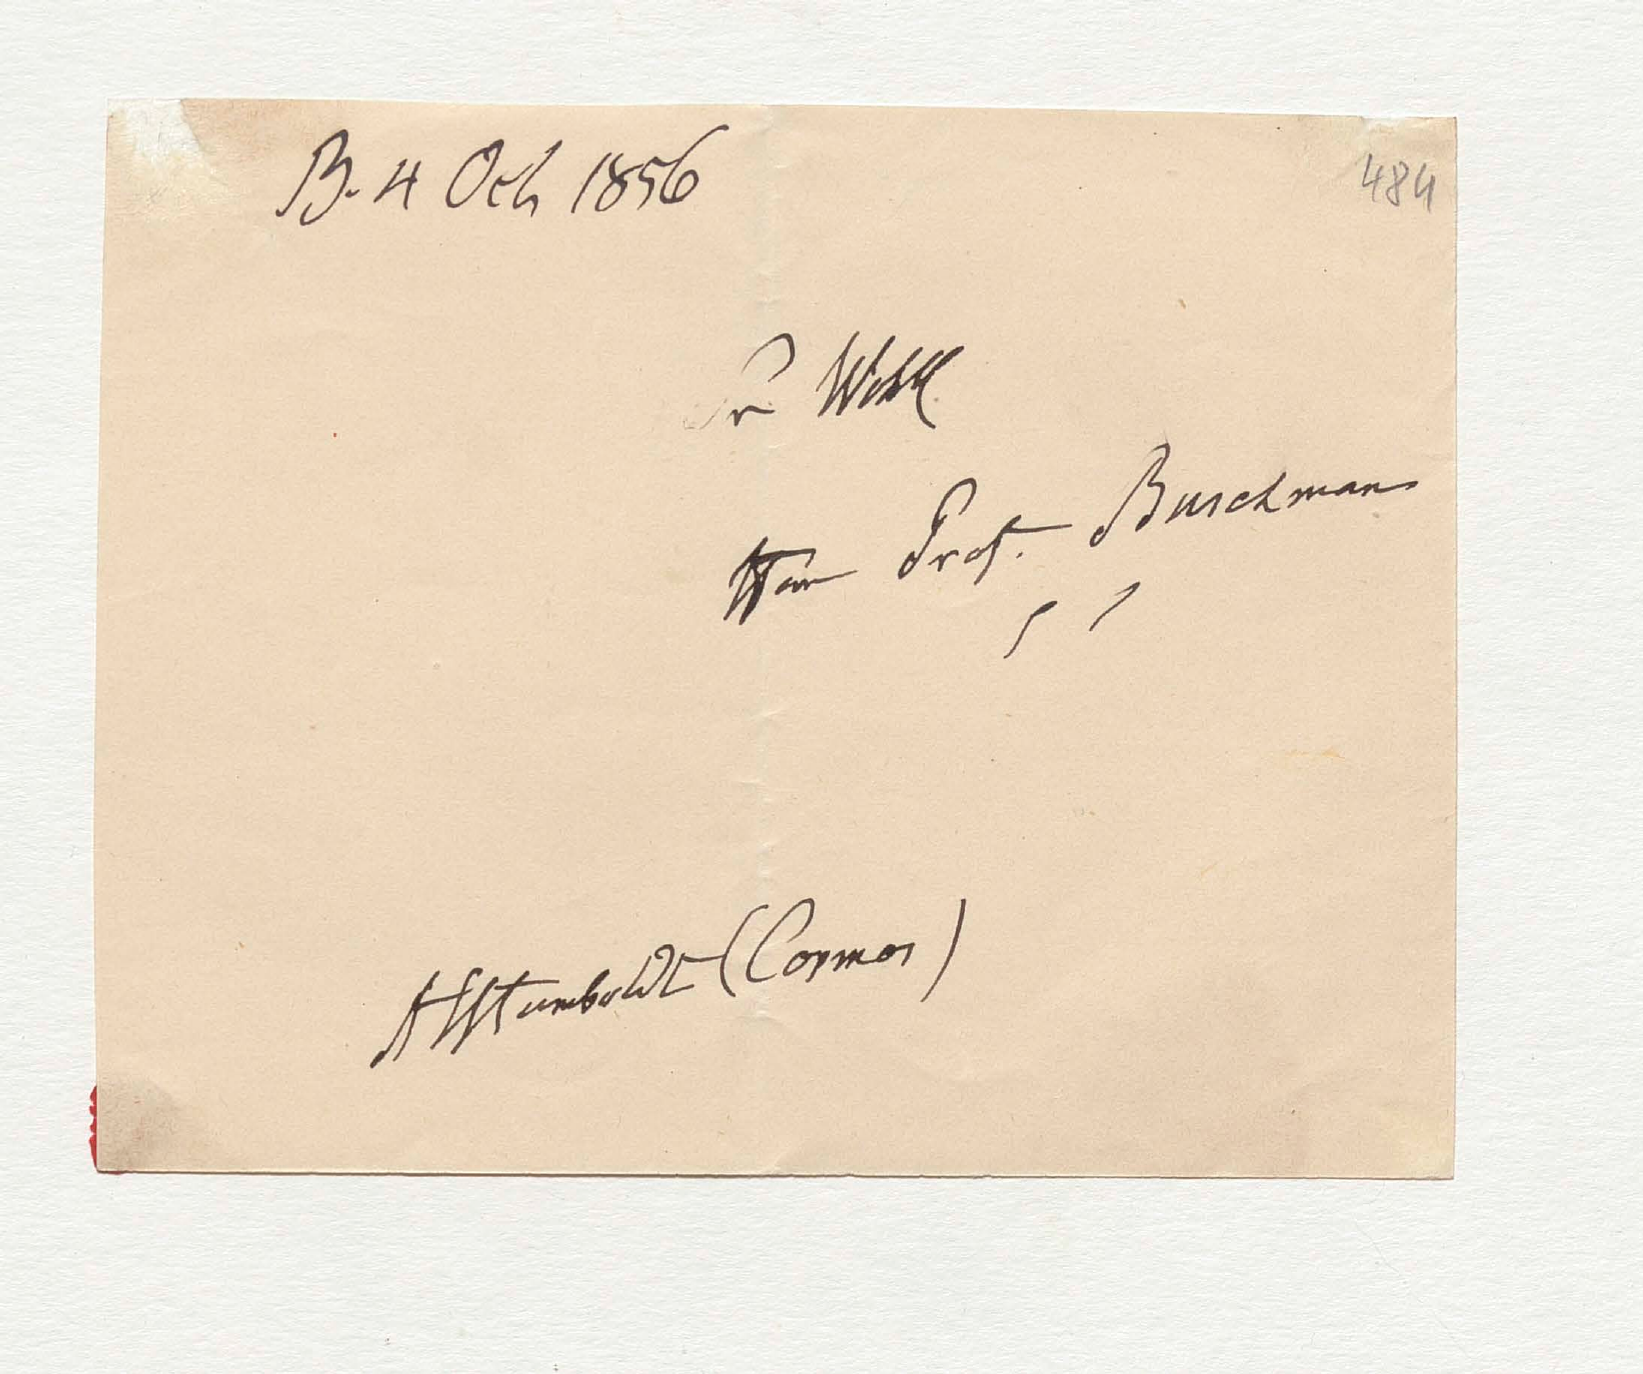 B. 4 Oct 1856
484
Sr Wohl
Herrn Prof. Buschmann
AvHumboldt (Cosmos)